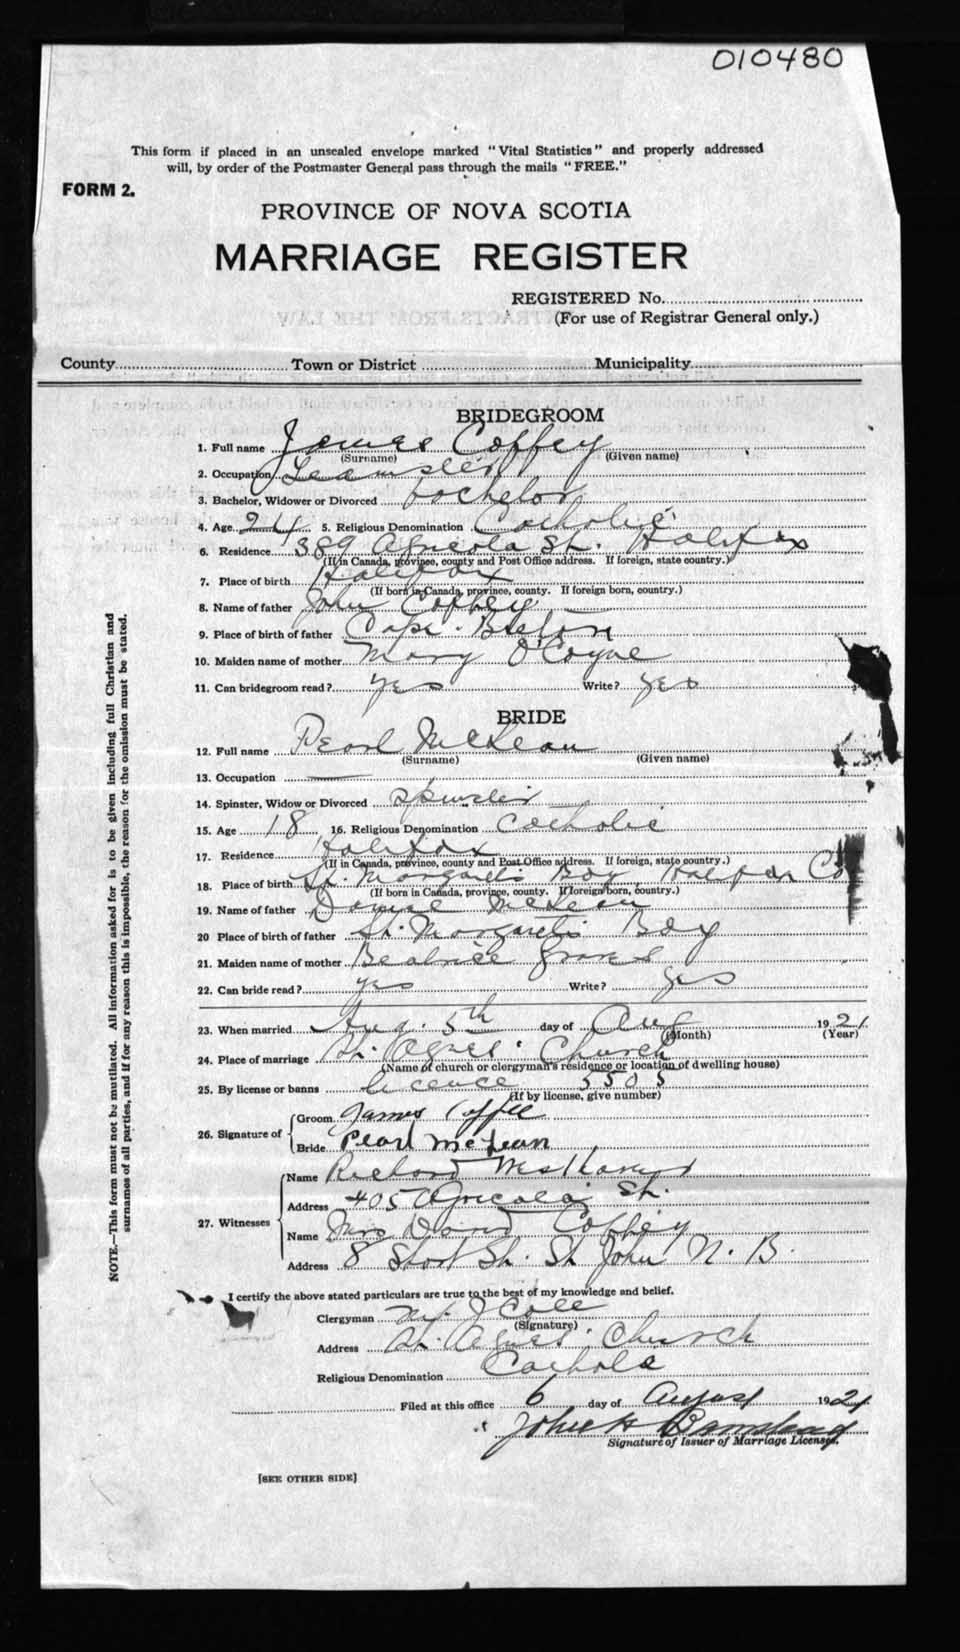 010480
This form if placed in an unsealed envelope marked "Vital Statistics" and properly addressed
will, by order of the Postmaster General pass through the mails "FREE."
FORM 2.
PROVINCE OF NOVA SCOTIA
MARRIAGE REGISTER
REGISTERED No.
(For use of Registrar General only.)
County Town or District Municipality
BRIDEGROOM
1. Full name James Coffey
(Surname) (Given name)
2. Occupation Teamster
3. Bachelor, Widower or Divorced bachelor
4. Age 24 5. Religious Denomination Catholic
6. Residence 389 Agricola St. Halifax
(If in Canada, province, county and Post Office address. If foreign, state country.)
7. Place of birth Halifax
(If born in Canada, province, county. If foreign born, country.)
8. Name of father John Coffey
9. Place of birth of father Cape Breton
10. Maiden name of mother Mary O'Coyne
11. Can bridegroom read? yes Write? yes
BRIDE
12. Full name Pearl McLean
(Surname) (Given name)
13. Occupation
14. Spinster, Widow or Divorced spinster
15. Age 18 16. Religious Denomination Catholic
17. Residence Halifax
(If in Canada, province, county and Post Office address. If foreign, state country.)
18. Place of birth St. Margarets Bay Halifax Co
(If born in Canada, province, county. If foreign born, country.)
19. Name of father McLean
20 Place of birth of father St. Margarets Bay
21. Maiden name of mother Beatrice Graves
22. Can bride read? yes Write? yes
23. When married Aug. 5th day of Aug 1921
(Month) (Year)
24. Place of marriage St. Agnes' Church
(Name of church or clergyman's residence or location of dwelling house)
25. By license or banns licence 5505
(If by license, give number)
26. Signature of
Groom James Coffee
Bride Pearl McLean
27. Witnesses
Name Richard
Address 405 Agricola St.
Name Mrs David Coffey
Address 8 Short St. St John N. B.
I certify the above stated particulars are true to the best of my knowledge and belief.
Clergyman J Cole
(Signature)
Address St. Agnes' Church
Religious Denomination
Filed at this office 6 day of August 1921
John H
Signature of Issuer of Marriage Licenses.
[SEE OTHER SIDE]
NOTE.—This form must not be mutilated. All information asked for is to be given including full Christian and
surnames of all parties, and if for any reason this is impossible, the reason for the omission must be stated.